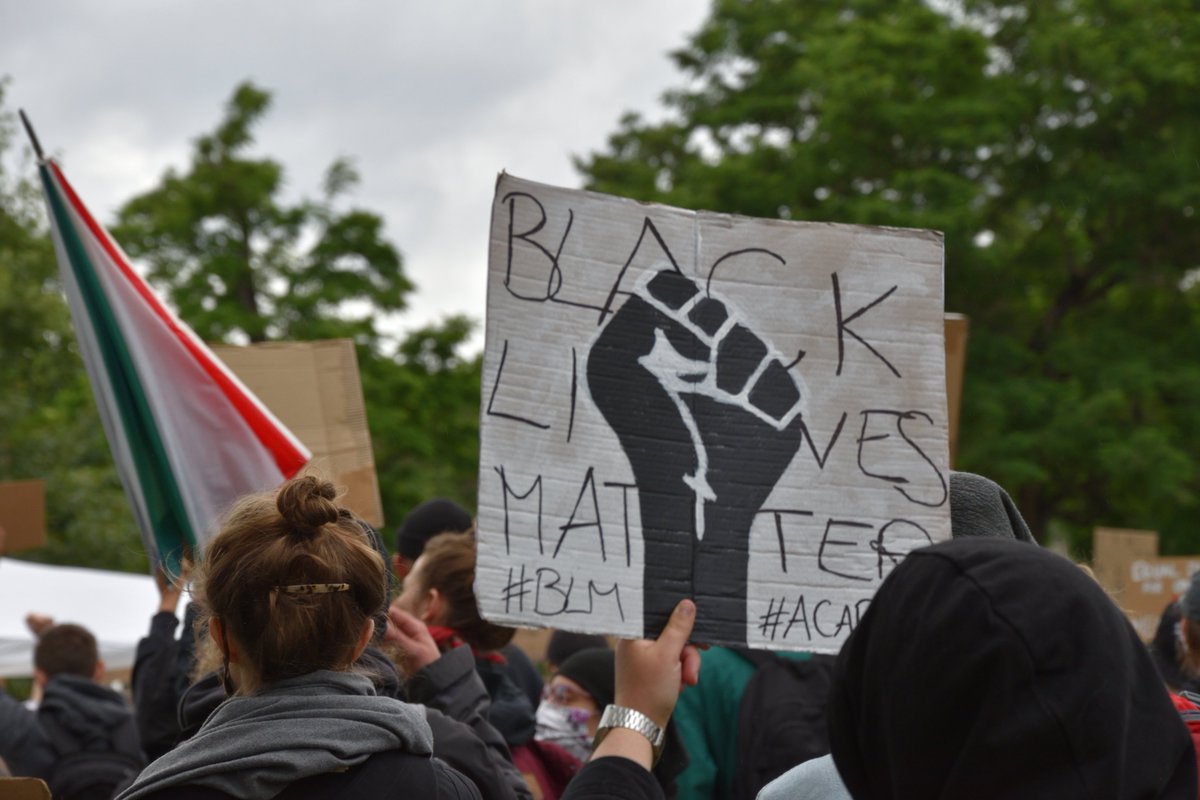 BLACK
LIVES
MATTER
#BLM #ACAB